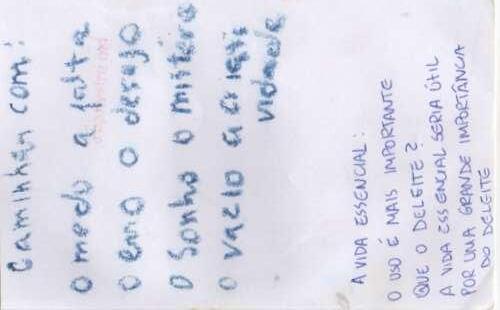 Caminhar com:
o medo a falta
o erro o desejo
o sonho o mistério
o vazio a criati
vidade
A VIDA ESSENCIAL:
O USO É MAIS IMPORTANTE
QUE O DELEITE?
A VIDA ESSENCIAL SERIA ÚTIL
POR UMA GRANDE IMPORTÂNCIA
DO DELEITE